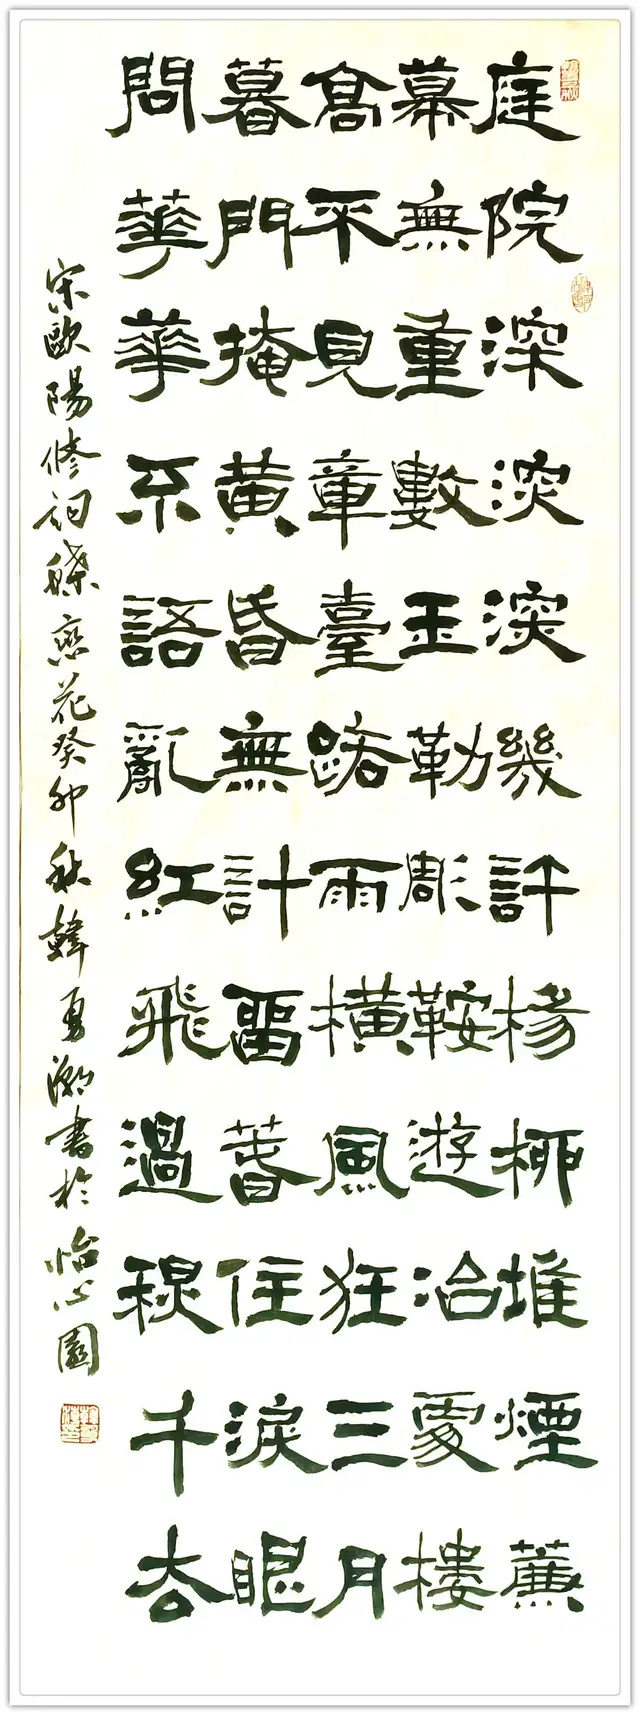 庭院深深深幾許楊柳堆煙簾
幕無重數玉勒彫鞍遊冶處樓
高不見章臺路雨橫風狂三月
暮門掩黃昏無計留春住淚眼
問華華不語亂紅飛過秋千去
宋歐陽修詞蝶戀花癸卯秋韓勇書於怡心園